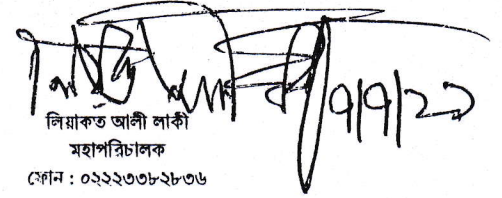 ৭/৭/২১
লিয়াকত আলী লাকী
মহাপরিচালক
ফোন : ০২২২৩৩৮২৮৩৬